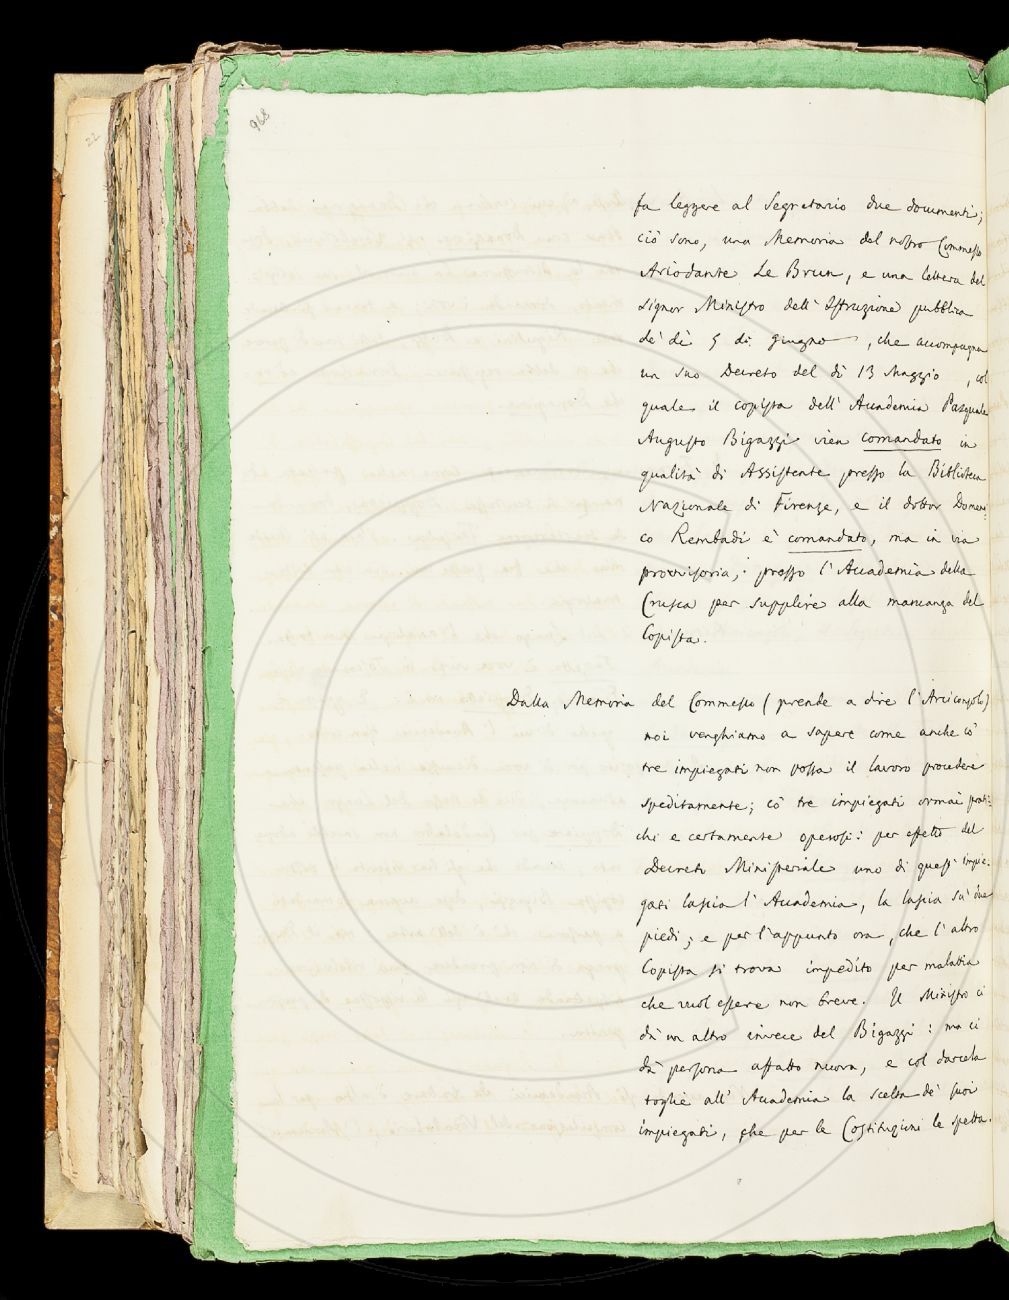 968
22
fa leggere al Segretario due documenti;
ciò sono, una Memoria del nostro Commesso
Ariodante Le Brun, e una lettera del
Signor Ministro dell' Istruzione pubblica
de' dì 5 di giugno, che accompagna
un suo Decreto del dì 13 Maggio, col
quale il copista dell' Accademia Pasquale
Augusto Bigazzi vien comandato in
qualità di Assistente presso la Biblioteca
Nazionale di Firenze, e il dottor Domeni-
co Rembadi è comandato, ma in via
provvisoria, presso l'Accademia della
Crusca per supplire alla mancanza del
Copista.
Dalla Memoria del Commesso (prende a dire l'Arciconsolo)
noi venghiamo a sapere come anche co'
tre impiegati non possa il lavoro procedere
speditamente; co' tre impiegati ormai prati-
chi e certamente operosi: per effetto del
Decreto Ministeriale uno di questi impie-
gati lascia l'Accademia, la lascia su' due
piedi; e per l'appunto ora, che l'altro
Copista si trova impedito per malattia
che vuol essere non breve. Il Ministro ci
dà un altro invece del Bigazzi: ma ci
dà persona affatto nuova, e col darcela
toglie all' Accademia la scelta de' suoi
impiegati, che per le Costituzioni le spetta.